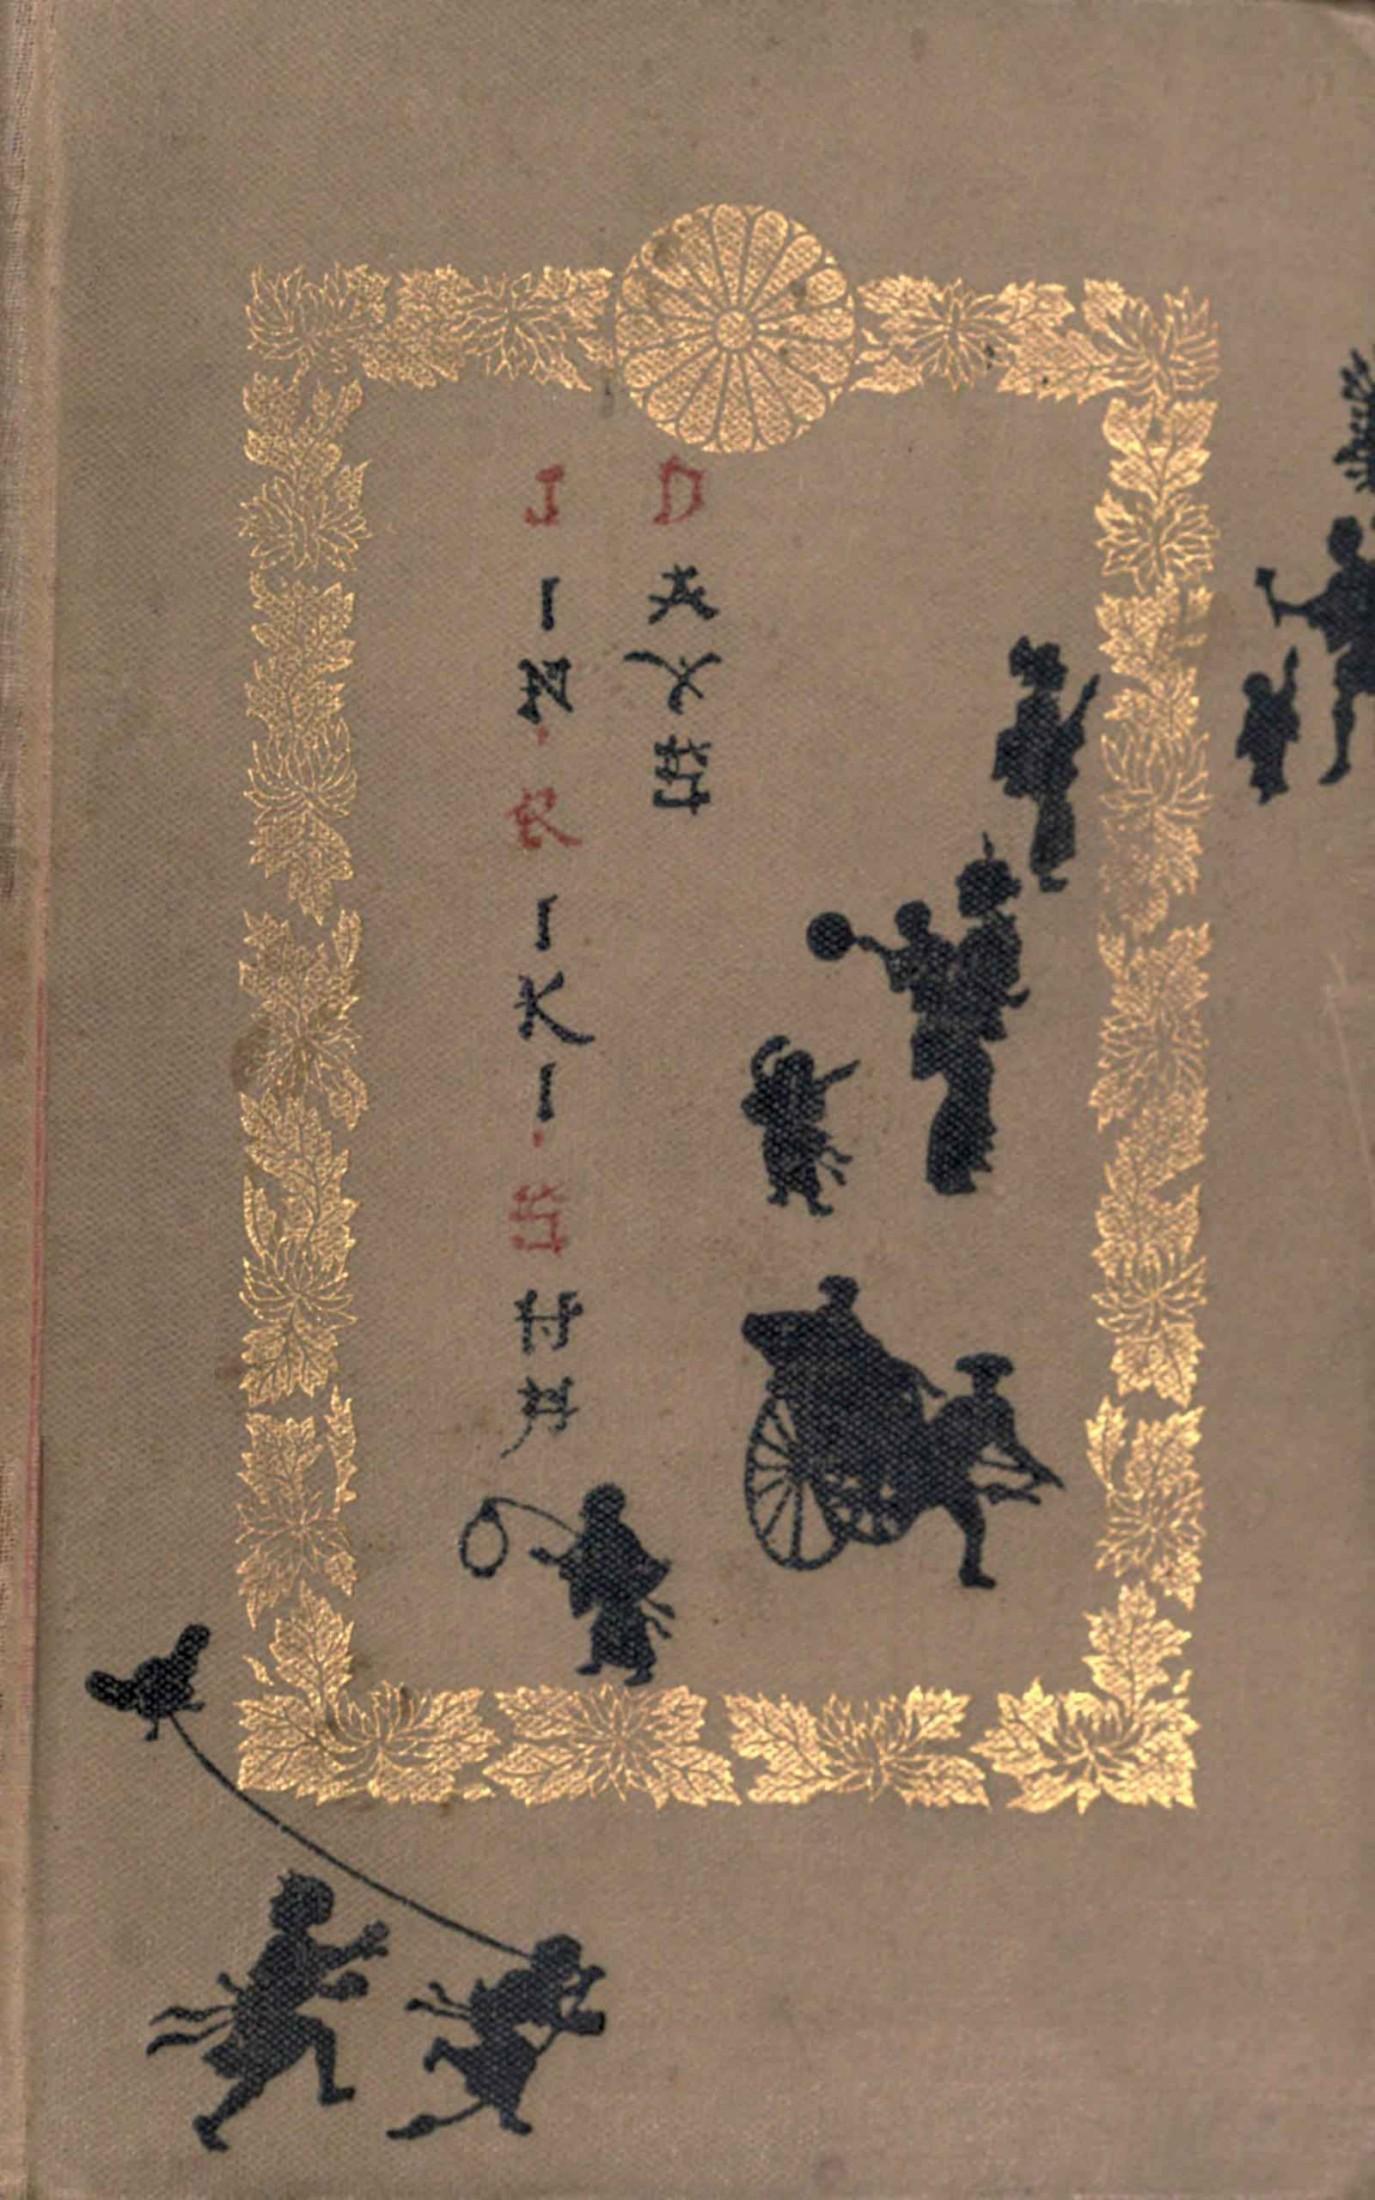 JIN·RIKI·SHA
DAYS